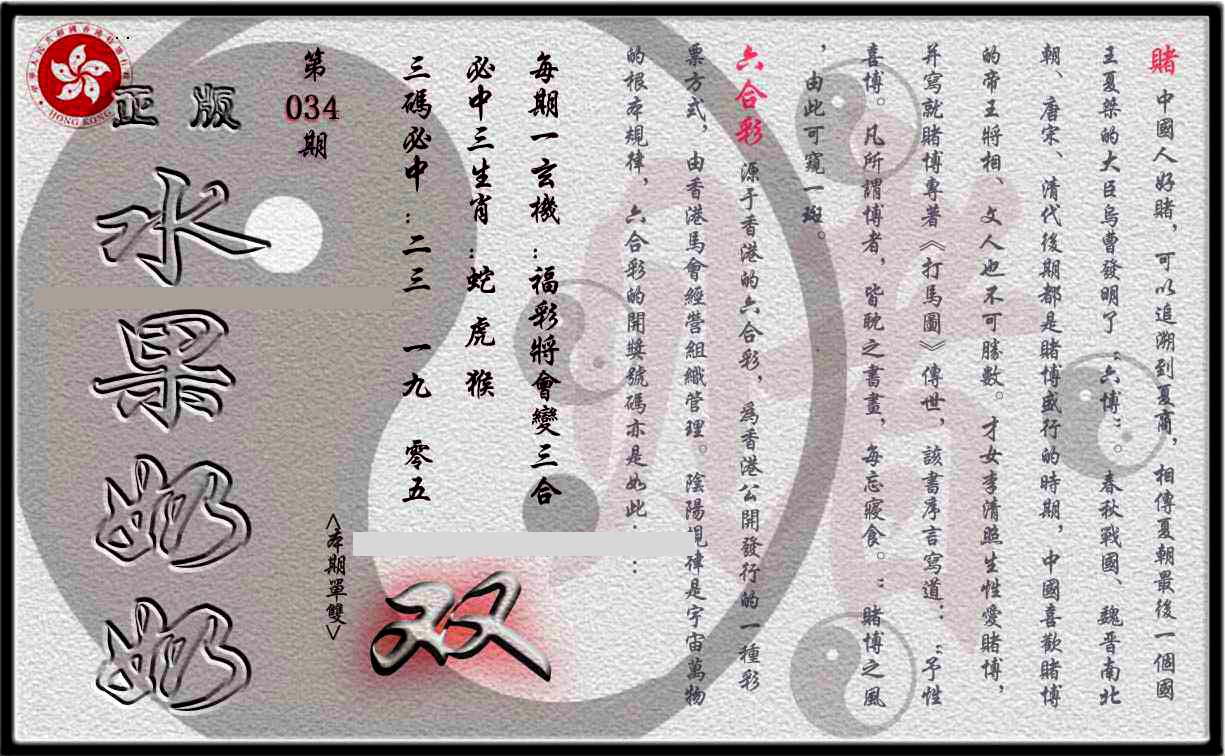 賭 中國人好賭，可以追溯到夏商，相傳夏朝最後一個國
王夏桀的大臣烏曹發明了“六博” 春秋戰國、魏晉南北
朝、唐宋、清代後期都是賭博盛行的時期，中國喜歡賭博
的帝王將相、文人也不可勝數。才女李清照生性愛賭博，
并寫就賭博專著《打馬圖》傳世，該書序言寫道：“予性
喜博。凡所謂博者，皆耽之書畫，每忘寢食。”賭博之風
，由此可窺一斑。
六合彩 源于香港的六合彩，為香港公開發行的一種彩
票方式，由香港馬會經營組織管理。陰陽規律是宇宙萬物
的根本規律，六合彩的開獎號碼亦是如此．：
每期一玄機：福彩將會變三合
必中三生肖：蛇 虎 猴
三碼必中：二三 一九 零五
第
034
期
<本期單雙>
双
正版
水果奶奶
HONG KONG